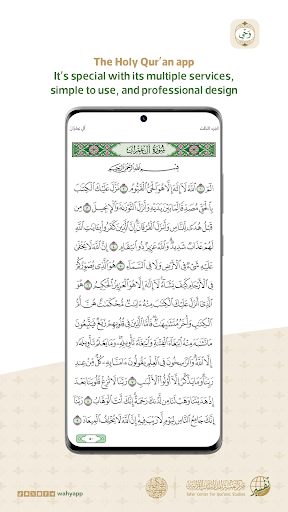 وحي
The Holy Qur'an app
It's special with its multiple services,
simple to use, and professional design
الجزء الثالث
آل عمران
سُورَةُ آلِ عِمْرَانَ
بِسْمِ اللَّهِ الرَّحْمَٰنِ الرَّحِيمِ
الٓمٓ ۝١ ٱللَّهُ لَآ إِلَٰهَ إِلَّا هُوَ ٱلْحَىُّ ٱلْقَيُّومُ ۝٢ نَزَّلَ عَلَيْكَ ٱلْكِتَٰبَ
بِٱلْحَقِّ مُصَدِّقًا لِّمَا بَيْنَ يَدَيْهِ وَأَنزَلَ ٱلتَّوْرَىٰةَ وَٱلْإِنجِيلَ ۝٣ مِن
قَبْلُ هُدًى لِّلنَّاسِ وَأَنزَلَ ٱلْفُرْقَانَ ۗ إِنَّ ٱلَّذِينَ كَفَرُوا۟ بِـَٔايَٰتِ ٱللَّهِ
لَهُمْ عَذَابٌ شَدِيدٌ ۗ وَٱللَّهُ عَزِيزٌ ذُو ٱنتِقَامٍ ۝٤ إِنَّ ٱللَّهَ لَا يَخْفَىٰ
عَلَيْهِ شَىْءٌ فِى ٱلْأَرْضِ وَلَا فِى ٱلسَّمَآءِ ۝٥ هُوَ ٱلَّذِى يُصَوِّرُكُمْ
فِى ٱلْأَرْحَامِ كَيْفَ يَشَآءُ ۚ لَآ إِلَٰهَ إِلَّا هُوَ ٱلْعَزِيزُ ٱلْحَكِيمُ ۝٦ هُوَ
ٱلَّذِىٓ أَنزَلَ عَلَيْكَ ٱلْكِتَٰبَ مِنْهُ ءَايَٰتٌ مُّحْكَمَٰتٌ هُنَّ أُمُّ
ٱلْكِتَٰبِ وَأُخَرُ مُتَشَٰبِهَٰتٌ ۖ فَأَمَّا ٱلَّذِينَ فِى قُلُوبِهِمْ زَيْغٌ فَيَتَّبِعُونَ
مَا تَشَٰبَهَ مِنْهُ ٱبْتِغَآءَ ٱلْفِتْنَةِ وَٱبْتِغَآءَ تَأْوِيلِهِۦ ۗ وَمَا يَعْلَمُ تَأْوِيلَهُۥٓ
إِلَّا ٱللَّهُ ۗ وَٱلرَّٰسِخُونَ فِى ٱلْعِلْمِ يَقُولُونَ ءَامَنَّا بِهِۦ كُلٌّ مِّنْ عِندِ
رَبِّنَا ۗ وَمَا يَذَّكَّرُ إِلَّآ أُو۟لُوا۟ ٱلْأَلْبَٰبِ ۝٧ رَبَّنَا لَا تُزِغْ قُلُوبَنَا بَعْدَ
إِذْ هَدَيْتَنَا وَهَبْ لَنَا مِن لَّدُنكَ رَحْمَةً ۚ إِنَّكَ أَنتَ ٱلْوَهَّابُ ۝٨ رَبَّنَآ
إِنَّكَ جَامِعُ ٱلنَّاسِ لِيَوْمٍ لَّا رَيْبَ فِيهِ ۚ إِنَّ ٱللَّهَ لَا يُخْلِفُ ٱلْمِيعَادَ ۝٩
٥٠
wahyapp
Tafsir Center for Qur'anic Studies